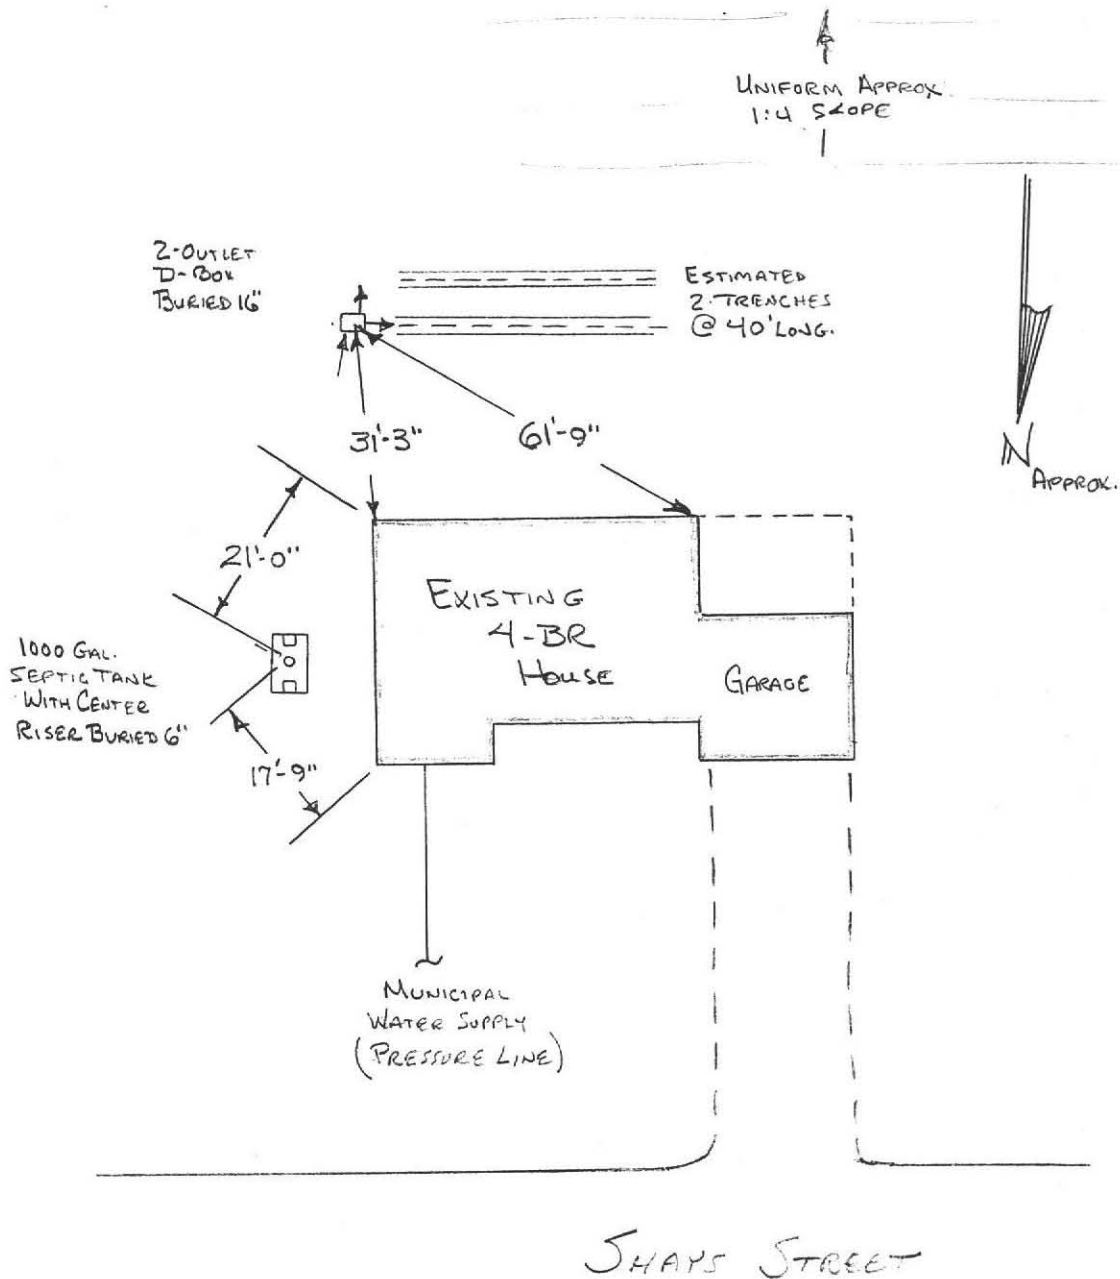 UNIFORM APPROX.
1:4 SLOPE
2-OUTLET
D-BOX
BURIED 16"
ESTIMATED
2-TRENCHES
@ 40' LONG.
31'-3"
61'-9"
N
APPROX.
21'-0"
EXISTING
4-BR
HOUSE
GARAGE
1000 GAL.
SEPTIC TANK
WITH CENTER
RISER BURIED 6"
17'-9"
MUNICIPAL
WATER SUPPLY
(PRESSURE LINE)
SHAYS STREET